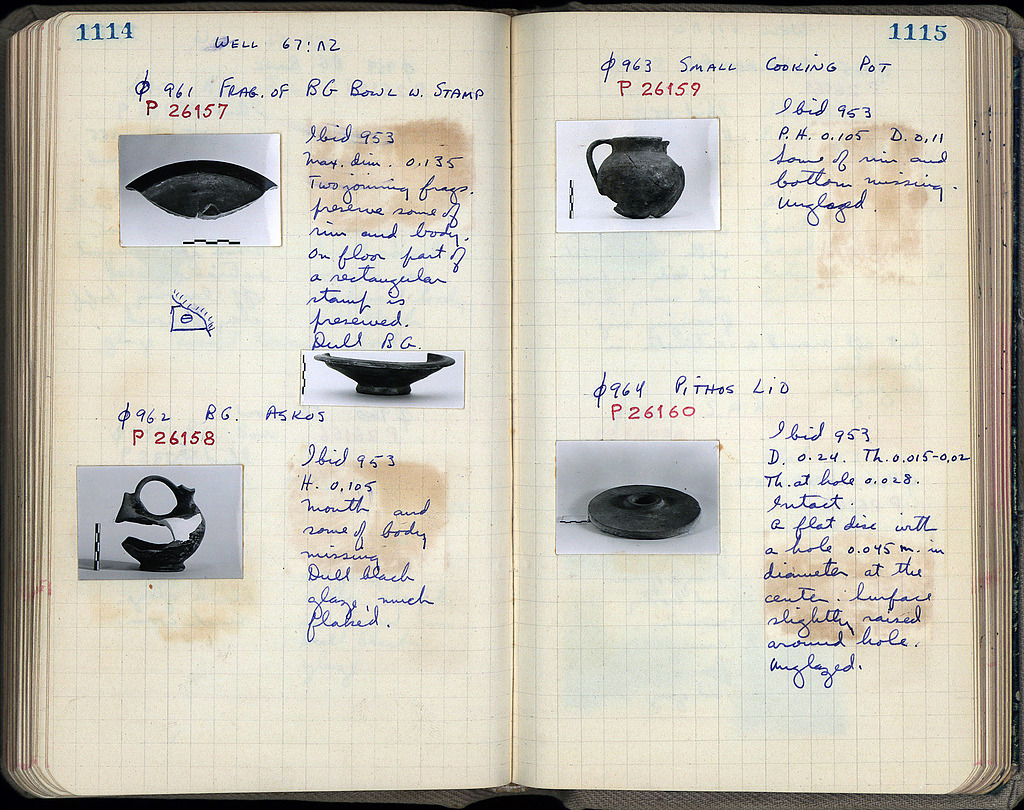 1114
WELL 67:Λ2
φ 961 FRAG. OF BG BOWL W. STAMP
P 26157
Ibid 953
Max. dim. 0.135
Two joining frags.
preserve some of
rim and body.
On floor part of
a rectangular
stamp is
preserved.
Dull BG.
φ962 BG. ASKOS
P 26158
Ibid 953
H. 0,105
Mouth and
some of body
missing
Dull black
glaze, much
flaked.
1115
φ963 SMALL COOKING POT
P 26159
Ibid 953
P.H. 0.105 D. 0,11
Some of rim and
bottom missing.
Unglazed.
φ964 PITHOS LID
P26160
Ibid 953
D. 0.24. Th. 0.015-0,02
Th. at hole 0.028.
Intact.
A flat disc with
a hole 0.045 m. in
diameter at the
center. Surface
slightly raised
around hole.
Unglazed.